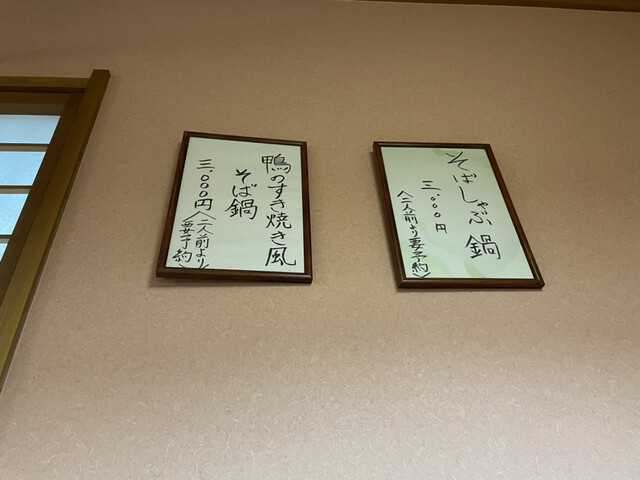 鴨のすき焼き風
そば鍋
三、〇〇〇円
〈二人前より〉
〈要予約〉
そばしゃぶ鍋
三、〇〇〇円
〈二人前より要予約〉